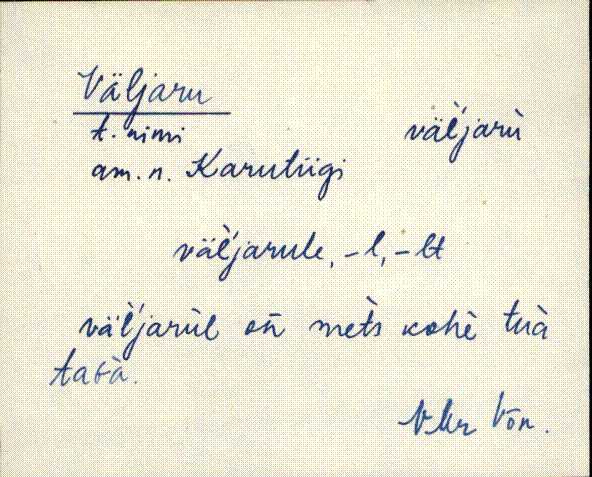 Väljaru
t. nimi väl'jarù
am. n. Karutiigi
väl'jarule, -l, -lt
väl'jarùl on̄ mets kohè tuà
tagà.
VMr Võn.